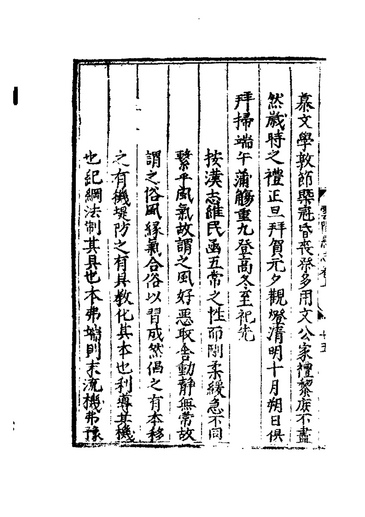 慕文學敦師藥冠昏喪祭多用文公家禮黎庶不盡
然歲時之禮正旦拜賀元夕觀燈清明十月朔日俱
拜掃端午蒲觴重九登高冬至祀先
按漢志雖民函五常之性而剛柔緩急不同
繫乎風氣故謂之風好惡取舍動靜無常故
謂之俗風緣氣合俗以習成然倡之有本移
之有機堤防之有具教化其本也利導其機
也紀綱法制其具也本弗端則末流機弗豫